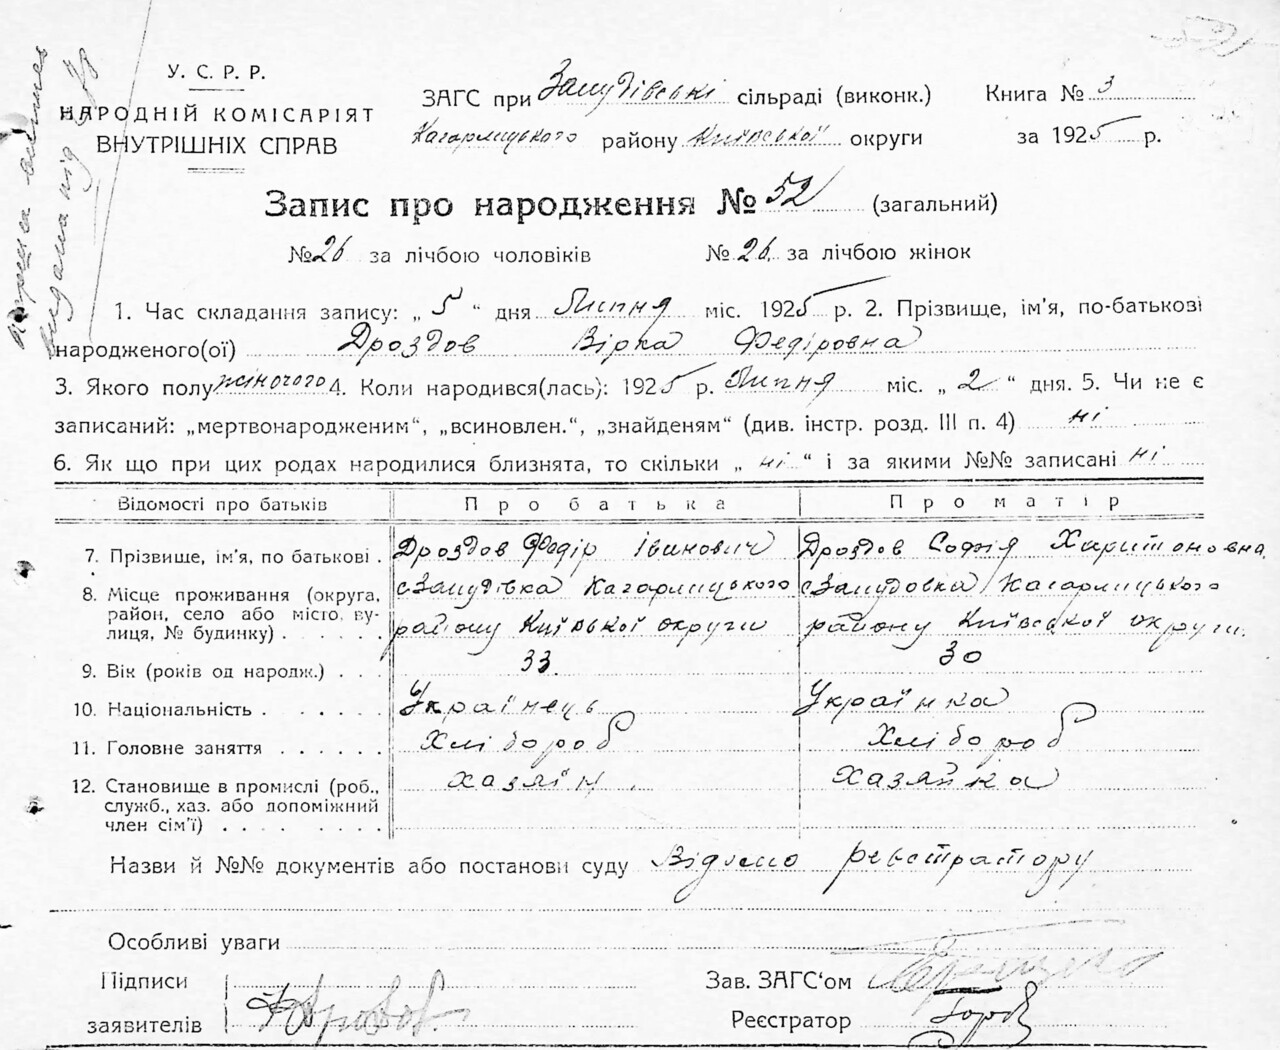 У. С. Р. Р.
НАРОДНІЙ КОМІСАРІЯТ
ВНУТРІШНІХ СПРАВ
ЗАГС при сільраді (виконк.) Книга № 3
Кагарлицького району Київської округи за 1925 р.
Запис про народження № 52 (загальний)
№ 26 за лічбою чоловіків № 26 за лічбою жінок
1. Час складання запису: „ 5 “ дня Липня міс. 1925 р. 2. Прізвище, ім'я, по-батькові
народженого(ої) Дроздов Вірка Федіровна
3. Якого полу жіночого 4. Коли народився(лась): 1925 р. Липня міс. „ 2 “ дня. 5. Чи не є
записаний: „мертвонародженим“, „всиновлен.“, „знайденям“ (див. інстр. розд. III п. 4) ні
6. Як що при цих родах народилися близнята, то скільки „ ні “ і за якими №№ записані ні
Відомості про батьків Про батька Про матір
7. Прізвище, ім'я, по батькові . Дроздов Федір Іванович Дроздов Софія Харитоновна
8. Місце проживання (округа, Кагарлицького Кагарлицького
район, село або місто, ву-
лиця, № будинку) . . . . . району Київької округи району Київської округи.
9. Вік (років од народж.) . . . 33 30
10. Національність . . . . . . Українець Українка
11. Головне заняття . . . . . . Хлібороб Хлібороб
12. Становище в промислі (роб., хазяїн хазяйка
служб., хаз. або допоміжний
член сім'ї) . . . . . . . .
Назви й №№ документів або постанови суду Відомо реєстратору
Особливі уваги
Підписи Зав. ЗАГС'ом
заявителів Реєстратор